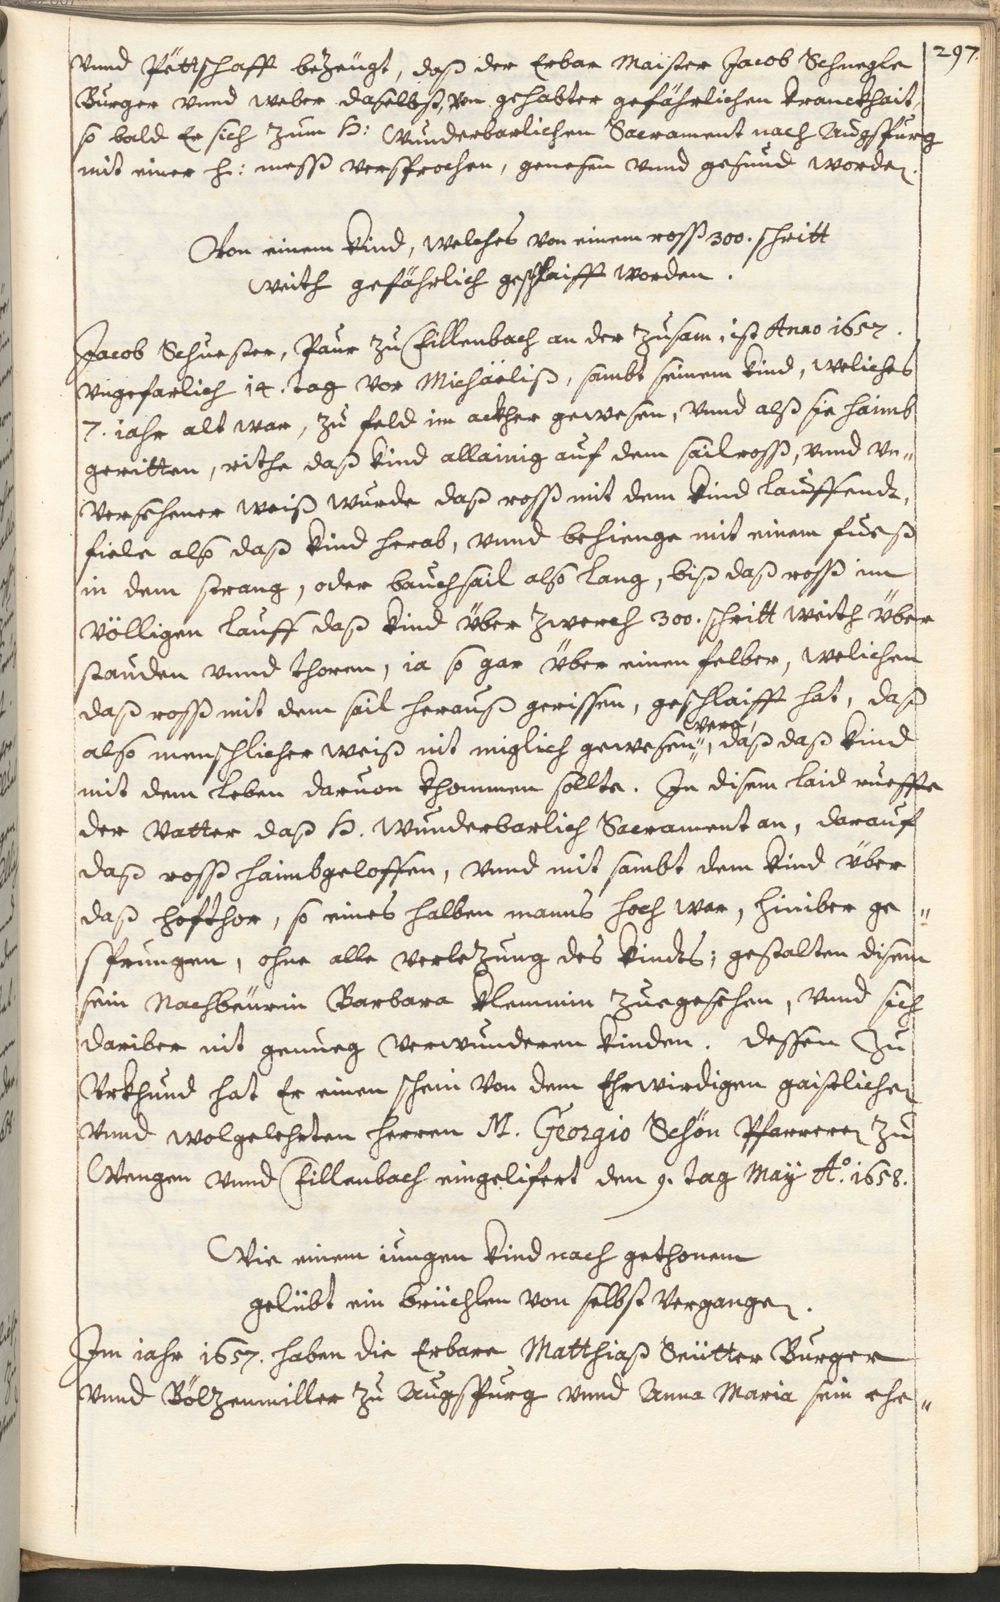 297.
vnnd Pettschafft bezeugt, daß der Erbar Maister Jacob Schnegle
Burger vnnd weber daselbst, von gehabter gefährlichen kranckhait,
so bald Er sich zum H: Wunderbarlichen Sacrament nach Augspurg
mit einer h: mess versprochen, genesen vnnd gesund worden.
Von einem kind, welches von einem ross 300. schritt
weith gefährlich geschlaifft worden.
Jacob Schuester, Paur zu Fillenbach an der Zusam, ist Anno 1657.
vngefarlich 14. tag vor Michäeliß, sambt seinem kind, weliches
7. iahr alt war, zu feld im ackher gewesen, vnnd alß sie haimb
geritten, rithe daß kind allainig auf dem sailross, vnnd vn„
versehener weiß wurde daß ross mit dem kind lauffendt,
fiele also daß kind herab, vnnd behienge mit einem fueß
in dem strang, oder bauchsail also lang, biß daß ross im
völligen lauff daß kind über zwerch 300. schritt weith über
stauden vnnd thoren, ia so gar über einen felber, welichen
daß ross mit dem sail herauß gerissen, geschlaifft hat, daß
also menschlicher weiß nit miglich gewesen were, daß daß kind
mit dem leben daruon khommen sollte. In disem laid rueffte
der Vatter daß H. Wunderbarlich Sacrament an, darauf
daß ross haimbgeloffen, vnnd mit sambt dem kind über
daß hofthor, so eines halben manns hoch war, hiniber ge„
sprungen, ohne alle verletzung des kindts; gestalten disem
sein Nachbeurin Barbara Klemmin zuegesehen, vnnd sich
dariber nit genueg verwunderen kinden. dessen zu
Vrkhund hat Er einen schein von dem Ehrwirdigen gaistlichen
vnnd wolgelehrten herren M. Georgio Schön Pfarreren zu
Wengen vnnd Fillenbach eingelifert den 9. tag Maÿ Aº. 1658.
Wie einem iungen kind nach gethonem
gelübt ein brüchlen von selbst vergangen.
Im iahr 1657. haben die Erbare Matthiaß Seütter Burger
vnnd Bölzenmiller zu Augspurg vnnd Anna Maria sein ehe„